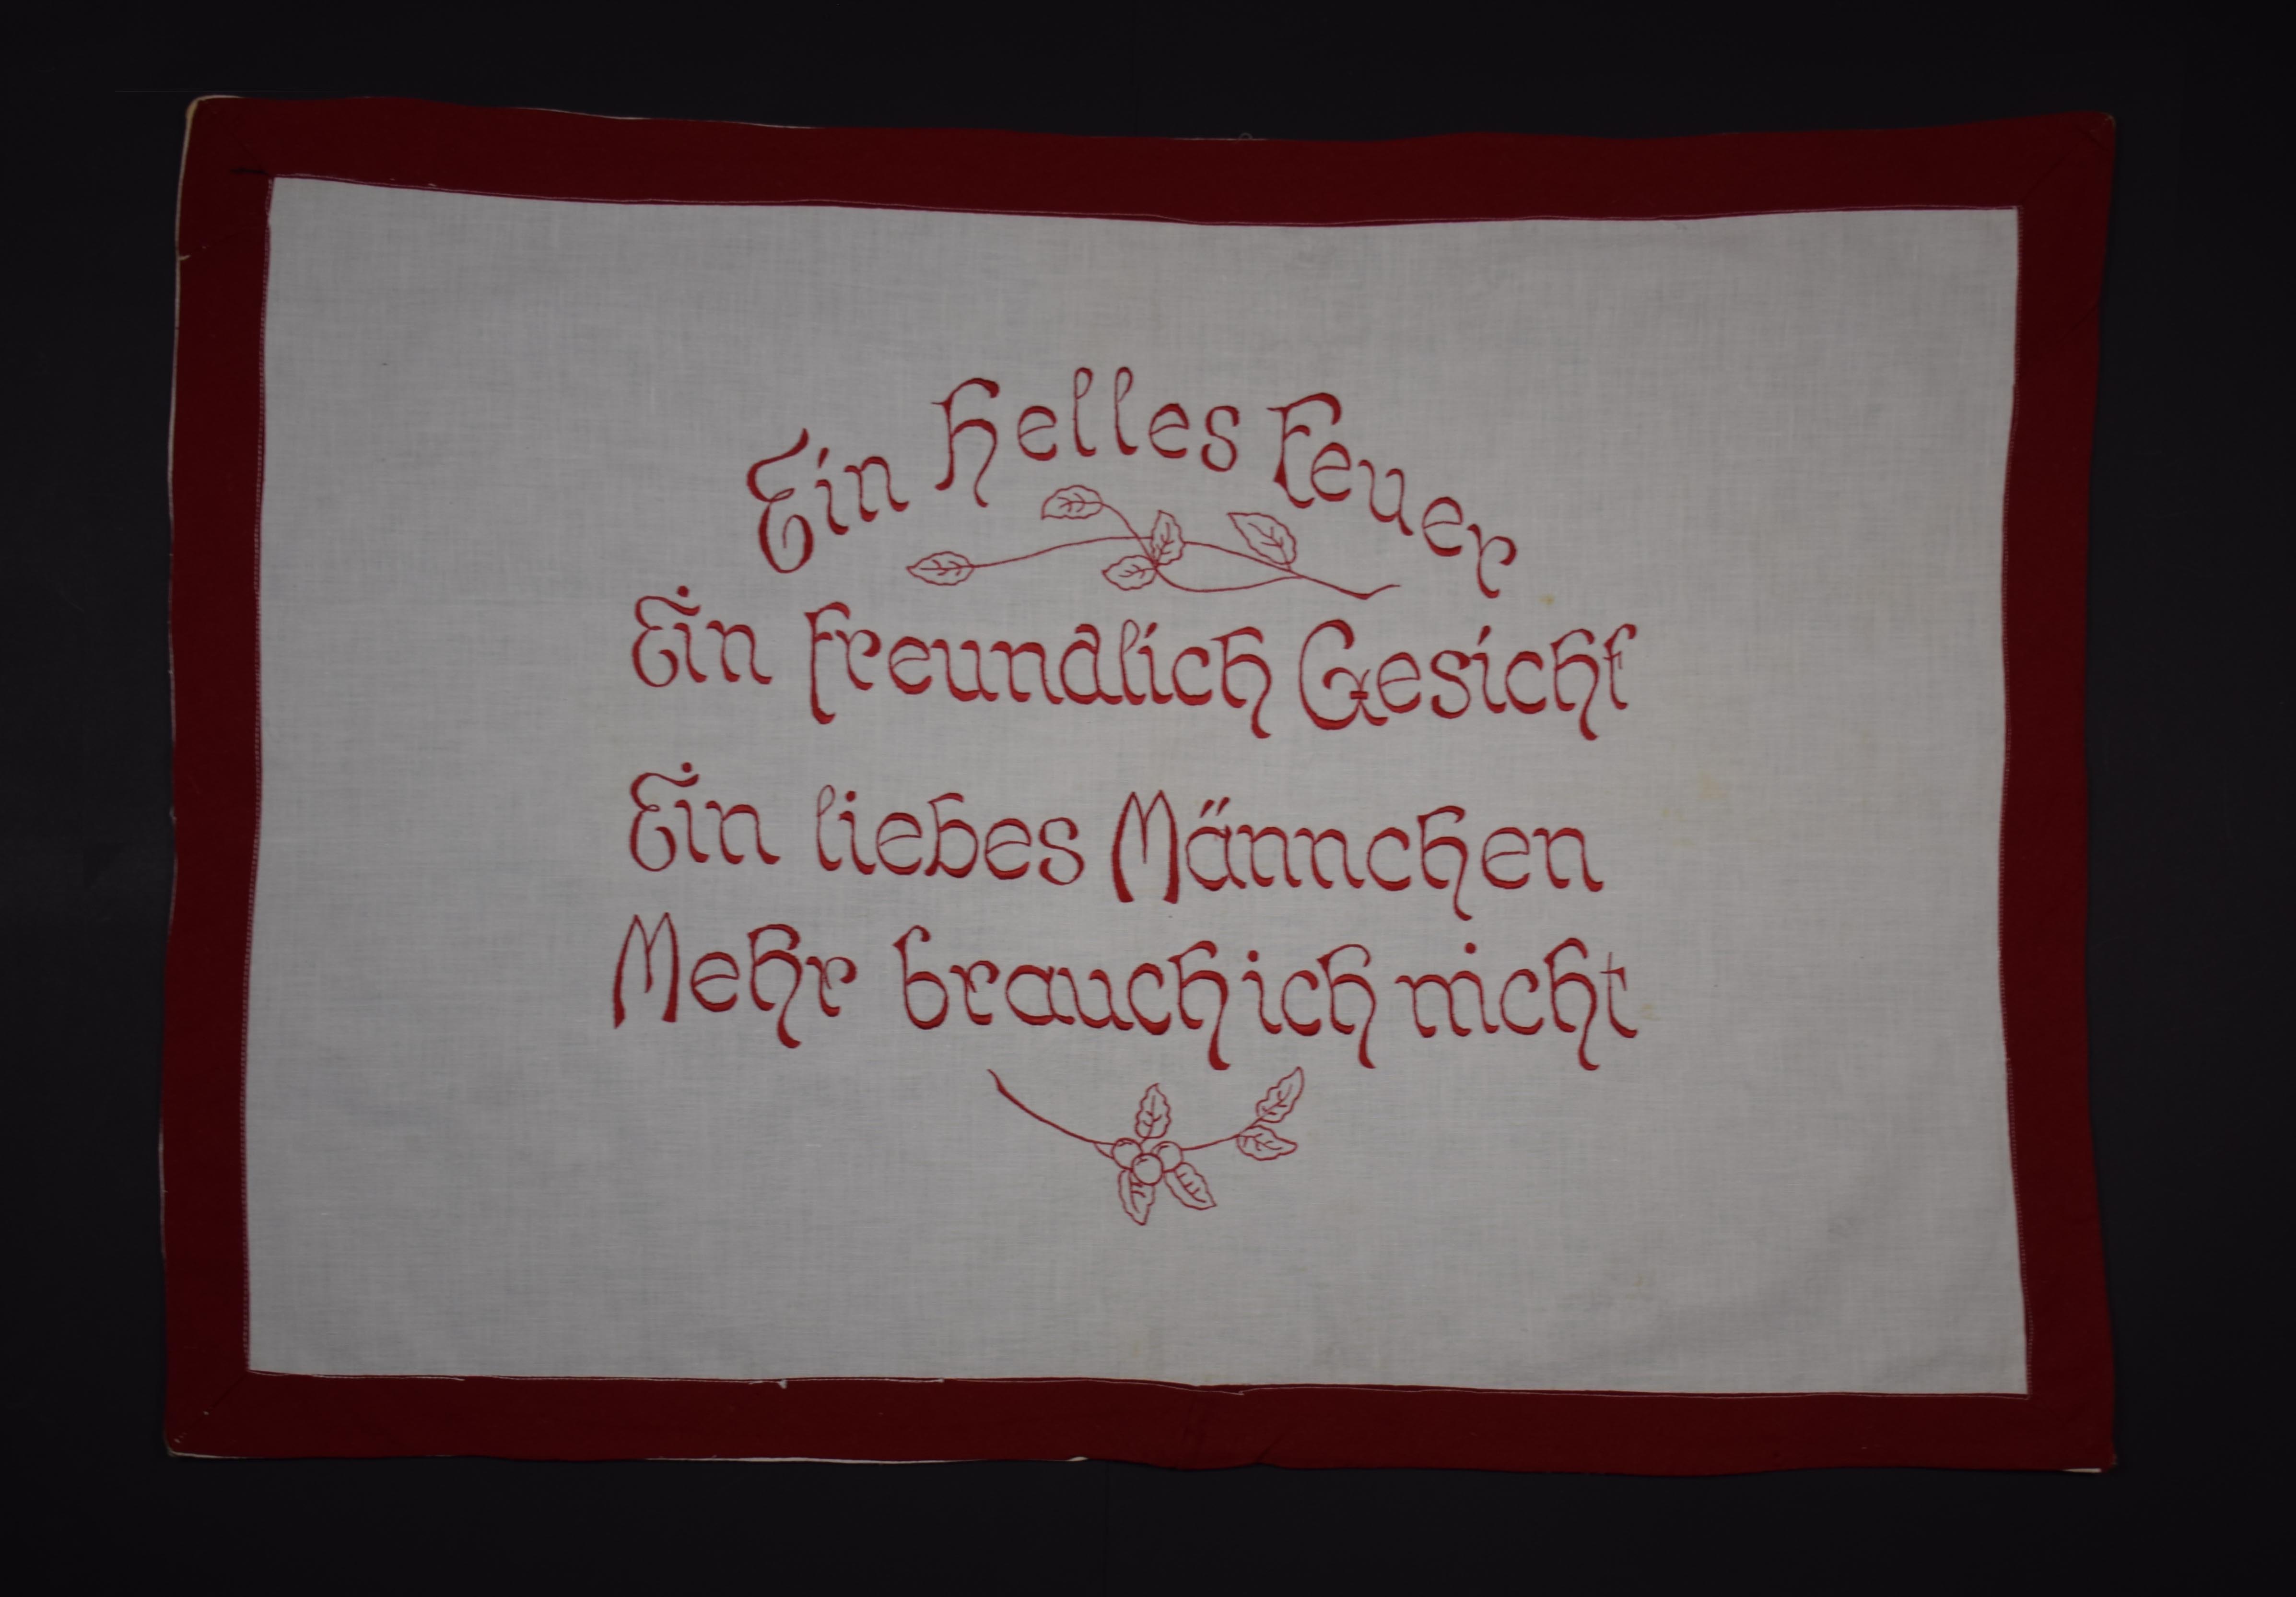 Ein helles Feuer
Ein freundlich Gesicht
Ein liebes Männchen
Mehr brauch ich nicht